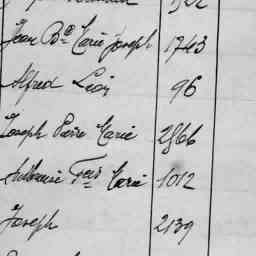 Jean Bte Marie Joseph 1743
Alfred Léon 96
Joseph Pierre Marie 2866
Ambroise Fcis Marie 1012
Joseph 2139